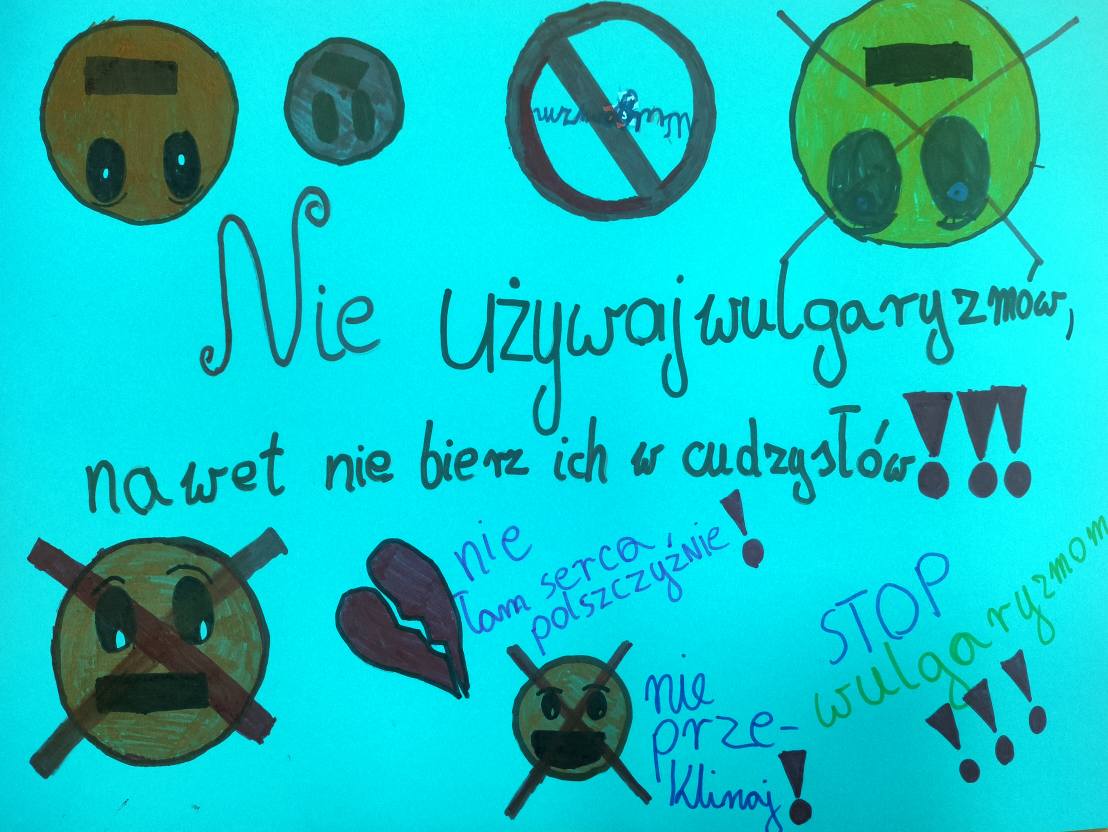 Wulgaryzmy
Nie używaj wulgaryzmów,
nawet nie bierz ich w cudzysłów!!!
nie
łam serca
polszczyźnie!
STOP
wulgaryzmom
!!!
nie
prze-
klinaj!